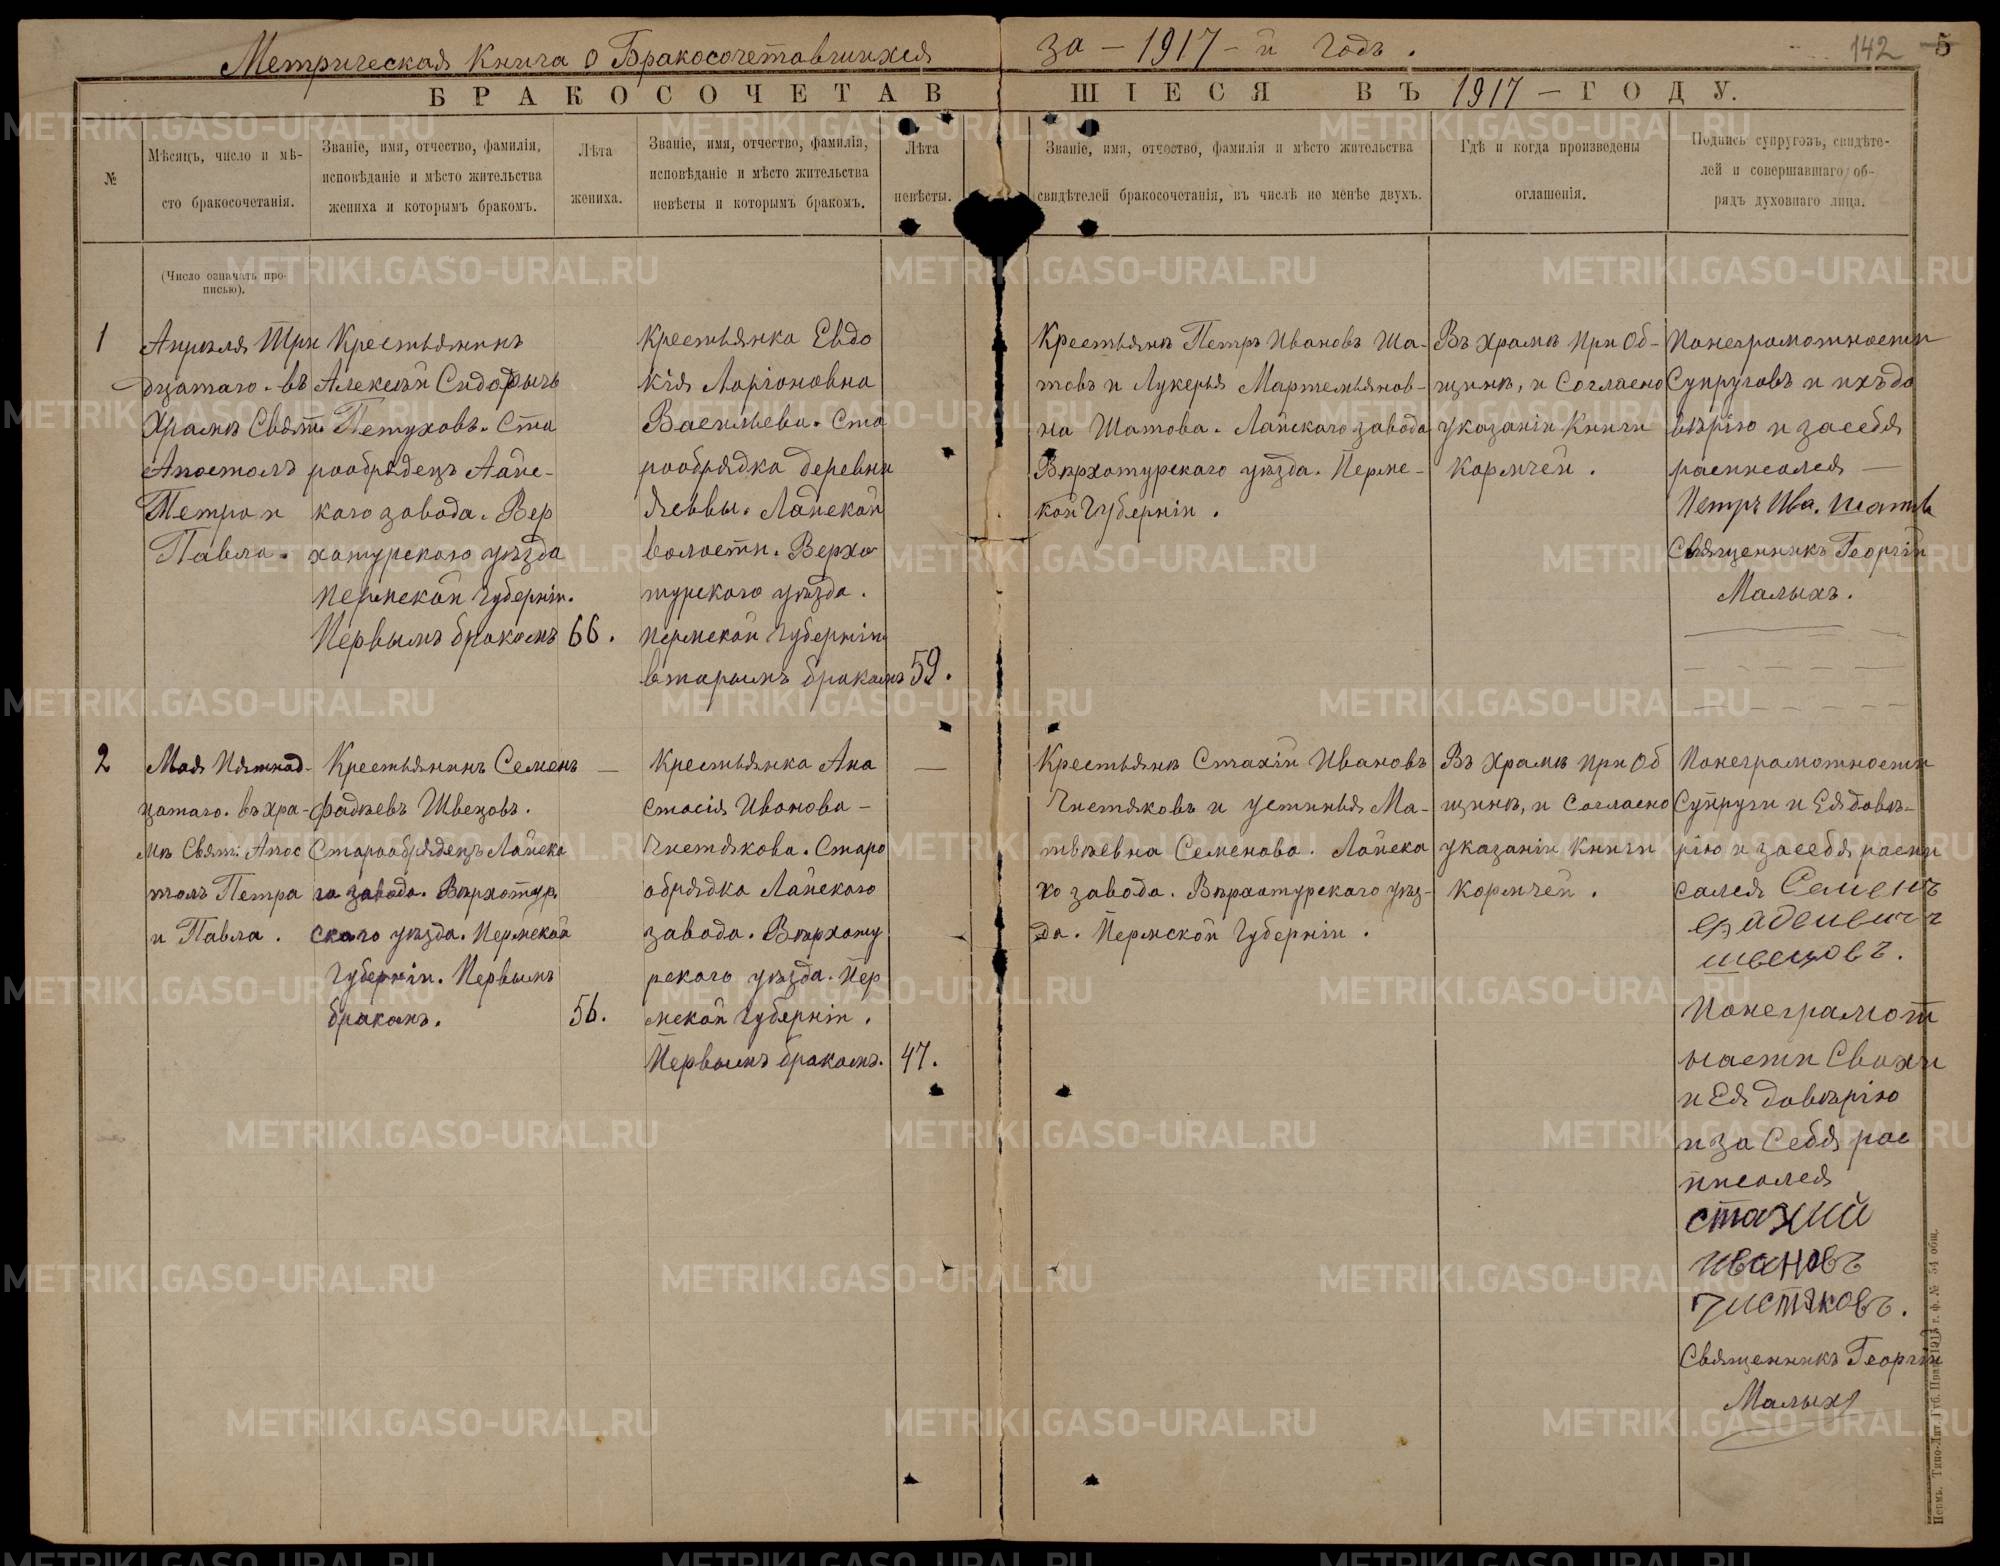 Метрическая Книга о Бракосочетавшихся за - 1917 - й годъ.
142 5
БРАКОСОЧЕТАВШІЕСЯ ВЪ 1917 - ГОДУ.
№
Мѣсяцъ, число и мѣ-
сто бракосочетанія.
Званіе, имя, отчество, фамилія,
исповѣданіе и мѣсто жительства
жениха и которымъ бракомъ.
Лѣта
жениха.
Званіе, имя, отчество, фамилія,
исповѣданіе и мѣсто жительства
невѣсты и которымъ бракомъ.
Лѣта
невѣсты.
Званіе, имя, отчество, фамилія и мѣсто жительства
свидѣтелей бракосочетанія, въ числѣ не менѣе двухъ.
Гдѣ и когда произведены
оглашенія.
Подпись супруговъ, свидѣте-
лей и совершавшаго об-
рядъ духовнаго лица.
(Число означать про-
писью).
1
Апреля Три
дцатаго. въ
Храмѣ Свят.
Апостолъ
Петра и
Павла.
Крестьянинъ
Алексѣй Сидорычъ
Петуховъ. Ста
рообрядецъ Лайс-
каго завода. Вер
хотурскаго уѣзда
Пермской Губерніи.
Первымъ бракомъ
66.
Крестьянка Евдо
кія Ларіоновна
Васильева. Ста
рообрядка деревни
Лайской
волости. Верхо
турскаго уѣзда.
Пермской Губерніи
вторымъ бракомъ
59.
Крестьянѣ Петръ Ивановъ Ша-
товъ и Лукерья Мартемьянов-
на Шатова. Лайскаго завода
Вѣрхотурскаго уѣзда. Пермс-
кой Губерніи.
Въ Храмѣ При Об-
щинѣ, и Согласно
указаніи Книги
Кормчей.
Понеграмотности
Супруговъ и ихъ до
вѣрію и засебя
росписался —
Петръ Ива. Шатов
Священникъ Георгій
Малыхъ.
2
Мая Пятнад-
цатаго. въ хра-
мѣ Свят. Апос
толъ Петра
и Павла.
Крестьянинъ Семенъ
Фадѣевъ Швецовъ.
Старообрядецъ Лайска
го завода. Вѣрхотур.
скаго уѣзда. Пермской
Губерніи. Первымъ
бракомъ.
56.
Крестьянка Ана
стасія Иванова -
Чистякова. Старо
обрядка Лайскаго
завода. Вѣрхоту
рскаго уѣзда. Пер
мской Губерніи.
Первымъ бракомъ.
47.
Крестьянѣ Стахій Ивановъ
Чистяковъ и Устинья Ма-
твѣевна Семенова. Лайска
го завода. Вѣрхотурскаго уѣз-
да. Пермской Губерніи.
Въ Храмѣ При Об
щинѣ, и Согласно
указаніи Книги
Кормчей.
Понеграмотности
Супруги и Ея довѣ-
рію и засебя роспи
сался Семенъ
Фадеивичъ
швецовъ.
Понеграмот
ности Свахи
и Ея довѣрію
и за Себя рос
писался
стахий
ивановъ
чистяковъ.
Священникъ Георгій
Малыхъ
METRIKI.GASO-URAL.RU